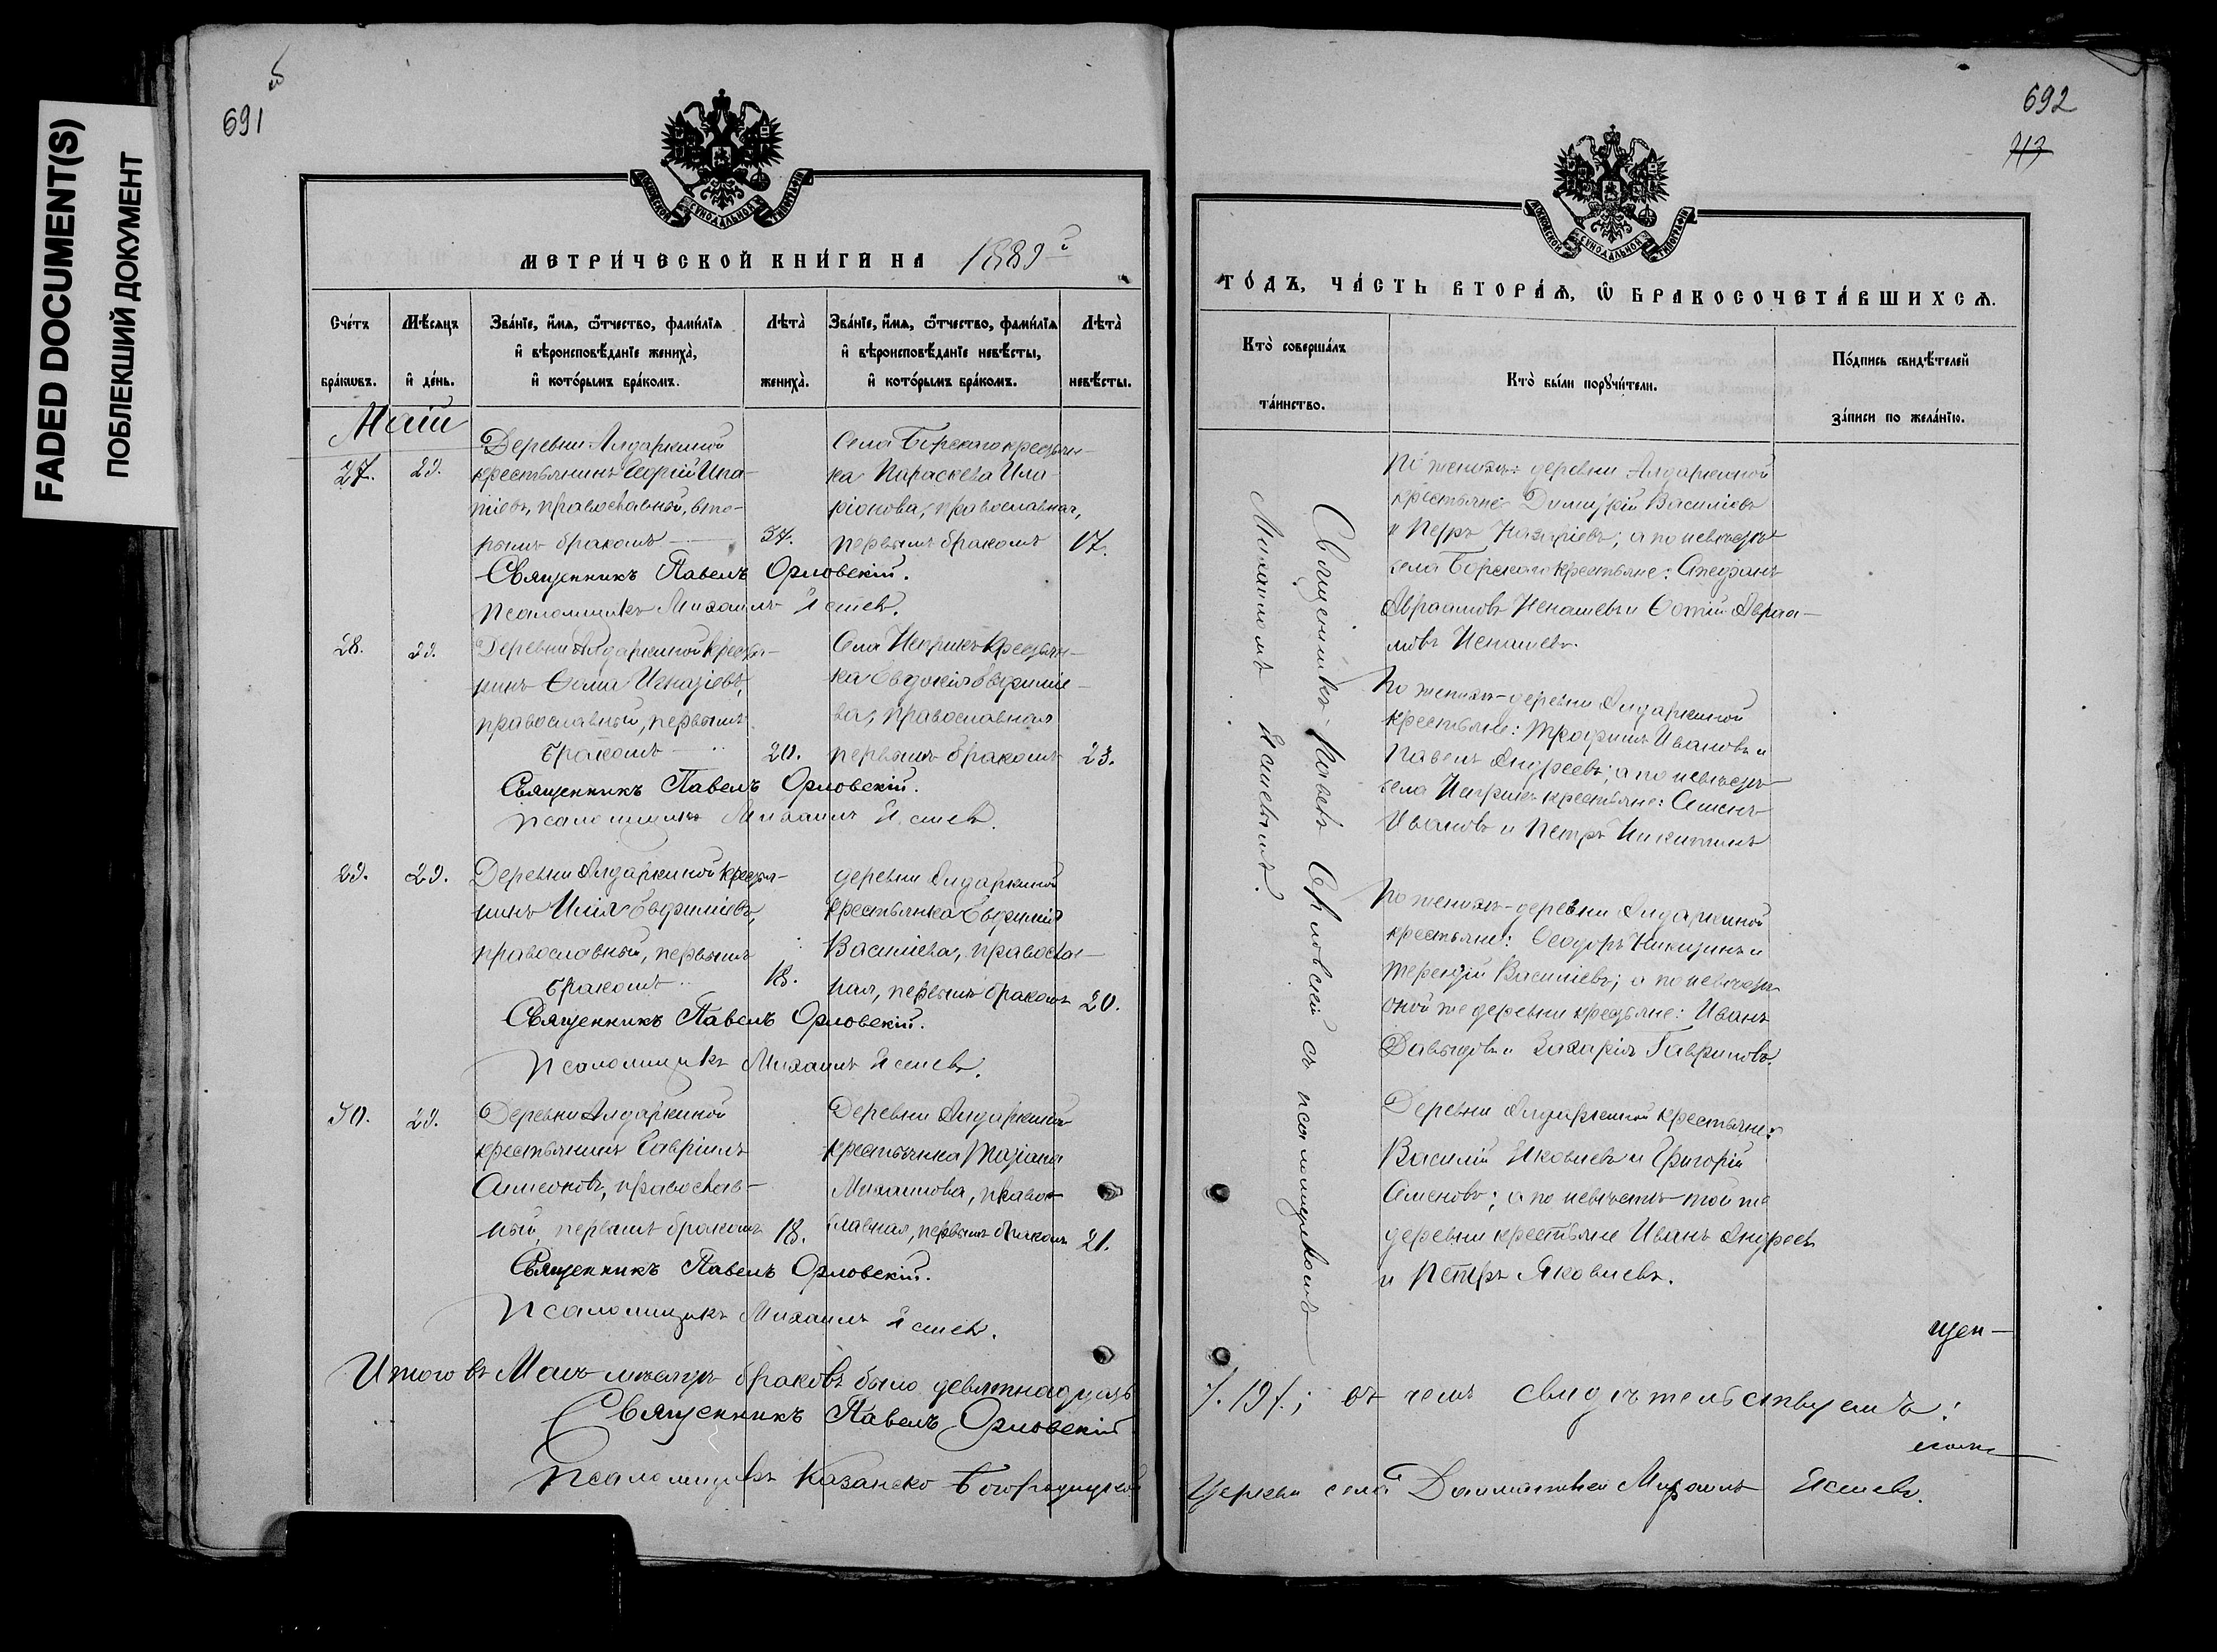 FADED DOCUMENT(S)
ПОБЛЕКШИЙ ДОКУМЕНТ
691 об
МОСКОВСКОЙ СѴНОДАЛЬНОЙ ТИПОГРАФІИ
МЕТРИ́ЧЕСКОЙ КНИ́ГИ НА 1889й
Сче́тъ бра́кѡвъ.
Мѣ́сяцъ и҆ де́нь.
Зва́нїе, и҆́мѧ, ѻ҆́тчество, фами́лїѧ
и҆ вѣроисповѣ́данїе жениха̀,
и҆ кото́рымъ бра́комъ.
Лѣта̀ жениха̀.
Зва́нїе, и҆́мѧ, ѻ҆́тчество, фами́лїѧ
и҆ вѣроисповѣ́данїе невѣ́сты,
и҆ кото́рымъ бра́комъ.
Лѣта̀ невѣ́сты.
Маій
27.
29.
Деревни Алдаркиной
крестьянинъ Георгій Ипа-
тіевъ, православный, вто-
рымъ бракомъ
34.
Села Борскаго крестьян-
ка Параскева Ила-
ріонова, православная,
первымъ бракомъ
17.
Священникъ Павелъ Орловскій.
Псаломщикъ Михаилъ Ясневъ.
28.
29.
Деревни Алдаркиной крестья-
нинъ Ѳома Игнатіевъ,
православный, первымъ
бракомъ
20.
Села Неприкъ крестьян-
ка Евдокія Евфиміе-
ва, православная
первымъ бракомъ
23.
Священникъ Павелъ Орловскій.
Псаломщикъ Михаилъ Ясневъ.
29.
29.
Деревни Алдаркиной крестья-
нинъ Илія Евфиміевъ,
православный, первымъ
бракомъ
18.
деревни Алдаркиной
крестьянка Евфимія
Васильева, православ-
ная, первымъ бракомъ
20.
Священникъ Павелъ Орловскій.
Псаломщикъ Михаилъ Ясневъ.
30.
29.
Деревни Алдаркиной
крестьянинъ Гавріилъ
Симеоновъ, православ-
ный, первымъ бракомъ
18.
Деревни Алдаркиной
крестьянка Татіана
Михаилова, право-
славная, первымъ бракомъ
21.
Священникъ Павелъ Орловскій.
Псаломщикъ Михаилъ Ясневъ.
Итого въ Маѣ мѣсяцѣ браковъ было девятнадцать
Священникъ Павелъ Орловскій
Псаломщикъ Казанско Богородицкой
692
713
МОСКОВСКОЙ СѴНОДАЛЬНОЙ ТИПОГРАФІИ
ГО́ДЪ, ЧА́СТЬ ВТОРА́Ѧ, Ѽ БРАКОСОЧЕТА́ВШИХСѦ.
Кто̀ соверша́лъ
та́инство.
Кто̀ бы́ли порꙋчи́тели.
По́дпись свидѣ́телей
за́писи по жела́нїю.
Священникъ Павелъ Орловскій съ псаломщикомъ
Михаиломъ Ясневымъ.
По женихѣ: деревни Алдаркиной
крестьяне Димитрій Василіевъ
и Петръ Назаріевъ; а по невѣстѣ
села Борскаго крестьяне: Стефанъ
Авраамовъ Ненашевъ и Ѳотій Авраа-
мовъ Ненашевъ.
По женихѣ - деревни Алдаркиной
крестьяне: Трофимъ Ивановъ и
Павелъ Андреевъ; а по невѣстѣ
села Неприкъ крестьяне: Семенъ
Ивановъ и Петръ Никитинъ
По женихѣ - деревни Алдаркиной
крестьяне: Ѳеодоръ Никитинъ и
Терентій Василіевъ; а по невѣстѣ
оной же деревни крестьяне: Иванъ
Давыдовъ и Захарія Гавриловъ.
Деревни Алдаркиной крестьяне:
Василій Яковлевъ и Григорій
Семеновъ; а по невѣстѣ - той же
деревни крестьяне Иванъ Андреевъ
и Петръ Яковлевъ.
/. 19 /.; въ чемъ свидѣтельствуемъ:
Церкви села Михаилъ Ясневъ.